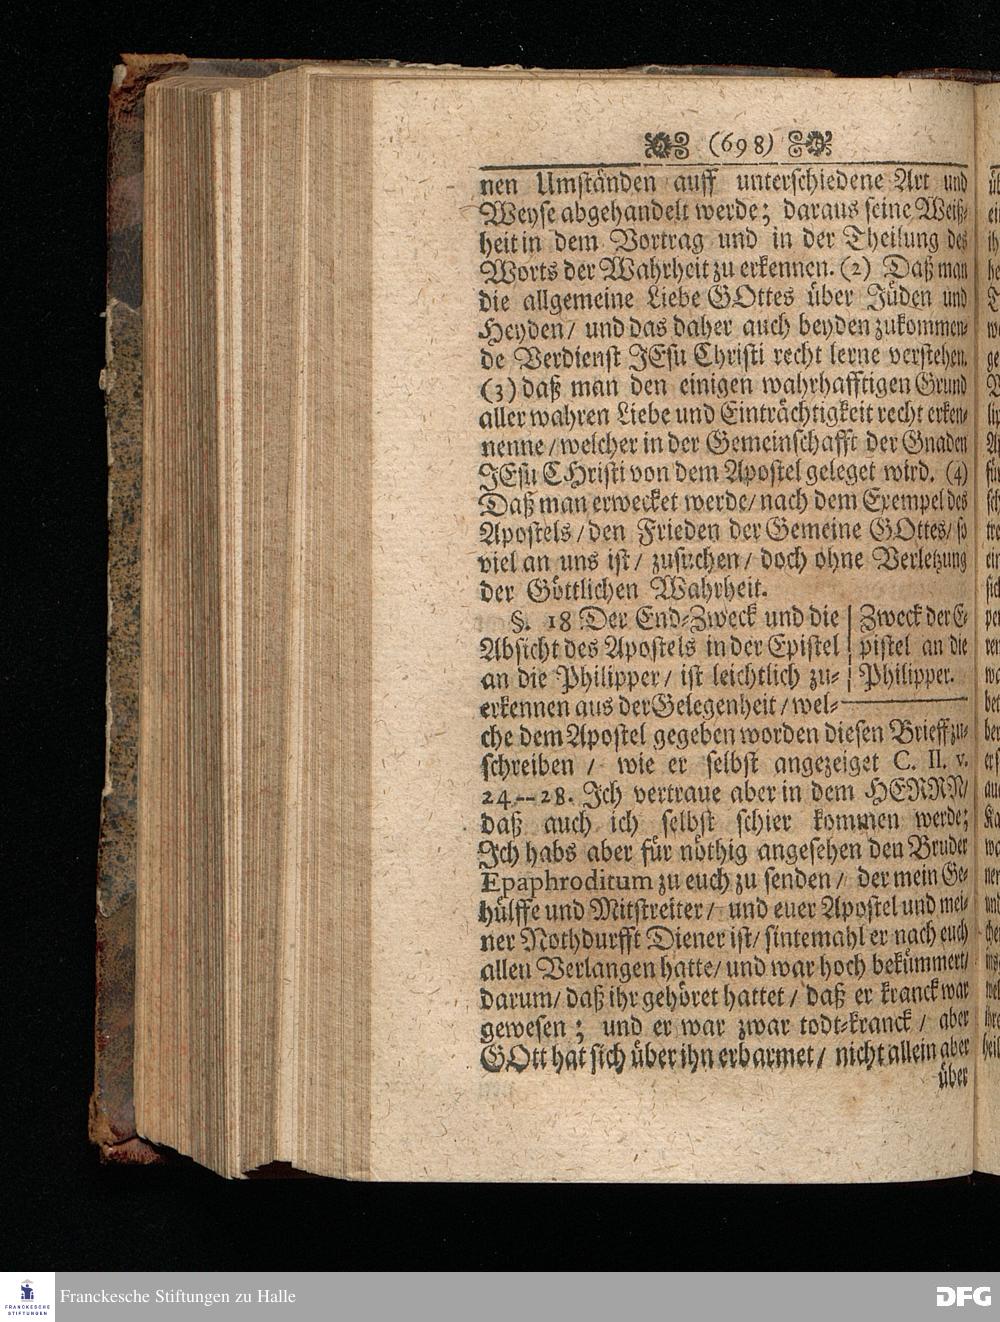 (698)
nen Umständen auff unterschiedene Art und
Weyse abgehandelt werde; daraus seine Weiß-
heit in dem Vortrag und in der Theilung des
Worts der Wahrheit zu erkennen. (2) Daß man
die allgemeine Liebe GOttes über Jüden und
Heyden/ und das daher auch beyden zukommen-
de Verdienst JEsu Christi recht lerne verstehen.
(3) daß man den einigen wahrhafftigen Grund
aller wahren Liebe und Einträchtigkeit recht erken-
nenne/ welcher in der Gemeinschafft der Gnaden
JEsu CHristi von dem Apostel geleget wird. (4)
Daß man erwecket werde/ nach dem Exempel des
Apostels/ den Frieden der Gemeine GOttes/ so
viel an uns ist/ zusuchen/ doch ohne Verletzung
der Göttlichen Wahrheit.
§. 18 Der End-Zweck und die
Absicht des Apostels in der Epistel
an die Philipper/ ist leichtlich zu-
erkennen aus der Gelegenheit/ wel-
Zweck der E-
pistel an die
Philipper.
che dem Apostel gegeben worden diesen Brieff zu-
schreiben / wie er selbst angezeiget C. II. v.
24.--28. Ich vertraue aber in dem HERRN/
daß auch ich selbst schier kommen werde;
Ich habs aber für nöthig angesehen den Bruder
Epaphroditum zu euch zu senden/ der mein Ge-
hülffe und Mitstreiter/ und euer Apostel und mei-
ner Nothdurfft Diener ist/ sintemahl er nach euch
allen Verlangen hatte/ und war hoch bekümmert/
darum/ daß ihr gehöret hattet/ daß er kranck war
gewesen; und er war zwar todt-kranck/ aber
GOtt hat sich über ihn erbarmet/ nicht allein aber
über
FRANCKESCHE
STIFTUNGEN
Franckesche Stiftungen zu Halle
DFG